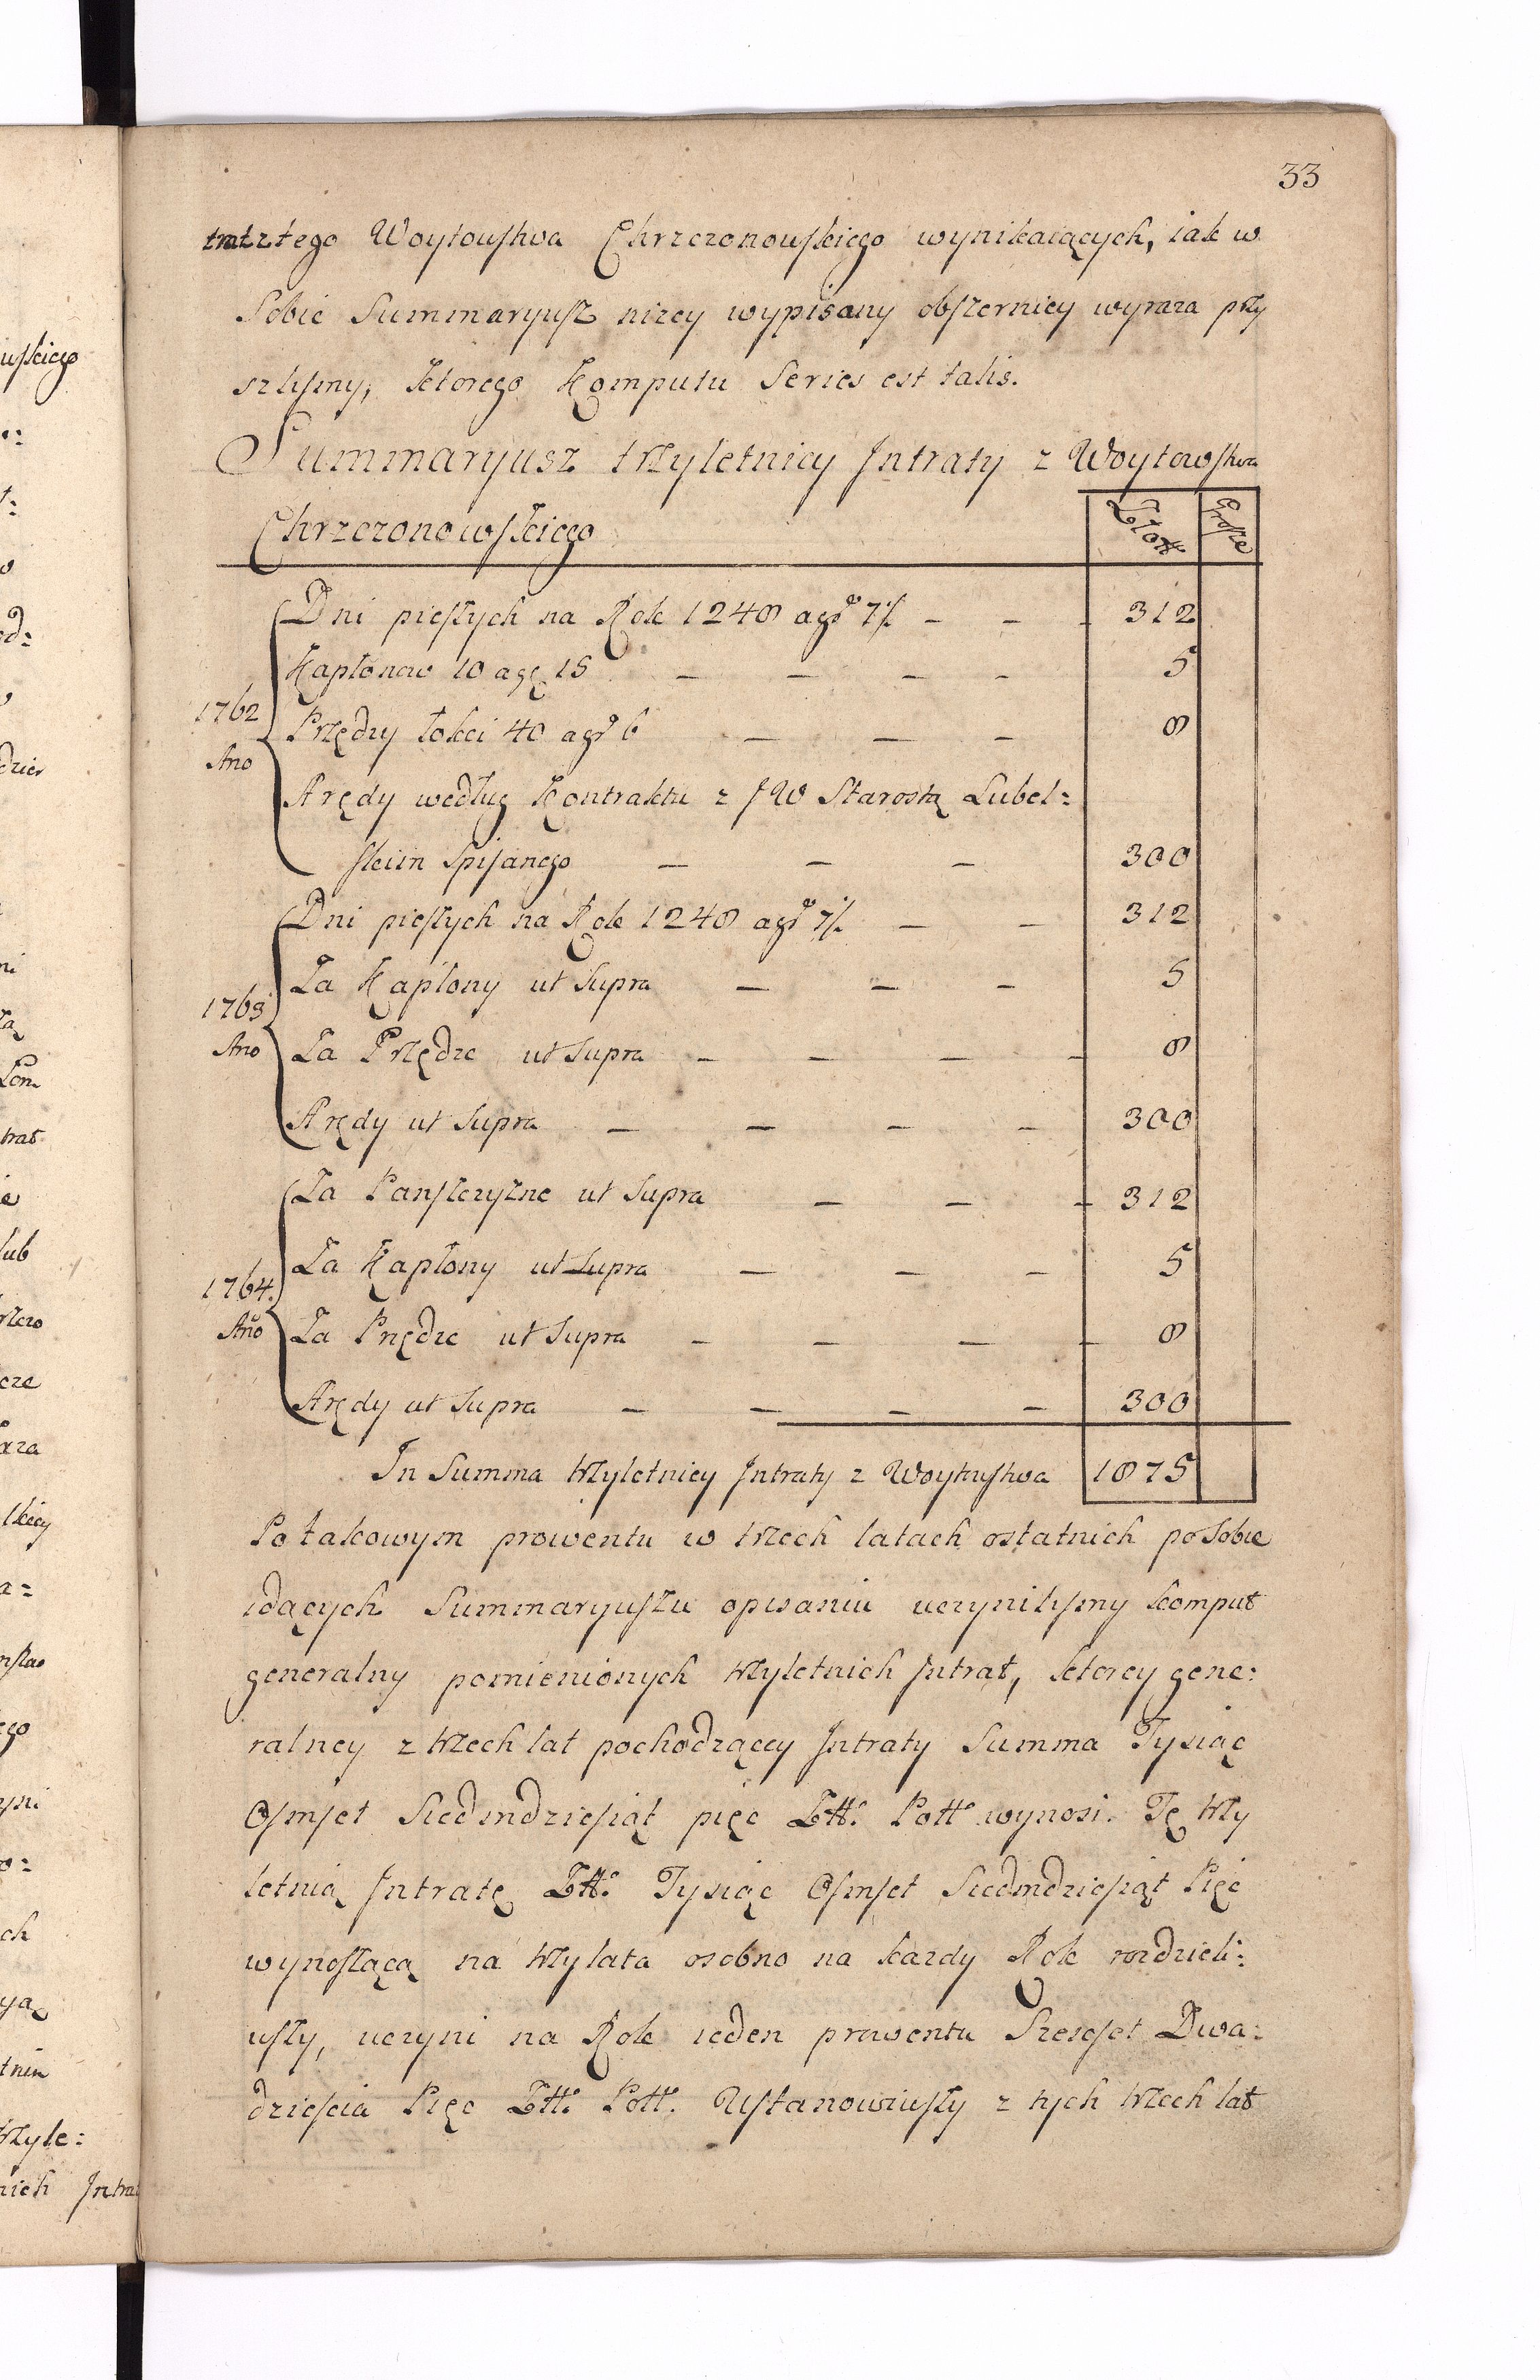 33
tratztego Woytowstwa Chrzczonowskiego wynikaiących, iak w
Sobie Summaryusz nizey wypisany obszerniey wyraza przy
szlismy, ktorego Komputu Series est talis.
Summaryusz trzyletniey Jntraty z Woytowstwa
Chrzczonowskiego Złote Grosze
Dni pieszych na Rok 1248 a gr 7½ — — — 312
Kapłonow 10 a gr 15 — — — — 5
1762 Przędzy łokci 40 a gr 6 — — — 8
Ano
Arędy według Kontraktu z JW Starostą Lubel:
skim Spisanego — — — 300
Dni pieszych na Rok 1248 a gr 7½ — — 312
Za Kapłony ut Supra — — — 5
1763
Ano Za Przędze ut Supra — — — — 8
Arędy ut Supra — — — — 300
Za Panszczyzne ut Supra — — — 312
Za Kapłony ut Supra — — — 5
1764.
Ano Za Przędze ut Supra — — — — 8
Arędy ut Supra — — — — 300
In Summa trzyletniey Jntraty z Woytustwa 1875
Po takowym prowentu w trzech latach ostatnich po Sobie
idących Summaryuszu opisaniu uczynilismy komput
generalny pomienionych trzyletnich Jntrat, ktorey gene:
ralney z trzech lat pochodzącey Jntraty Summa Tysiąc
Osmset Siedmdziesiąt pięc Złł. Poll. wynosi. Tę trzy
letnią Jntratę Złł. Tysiąc Osmset Siedmdziesiąt Pięc
wynoszącą na trzy lata osobno na kazdy Rok rozdzieli:
wszy, uczyni na Rok ieden prowentu Szescset Dwa:
dziescia Pięc Złł. Poll. Ustanowiwszy z tych trzech lat